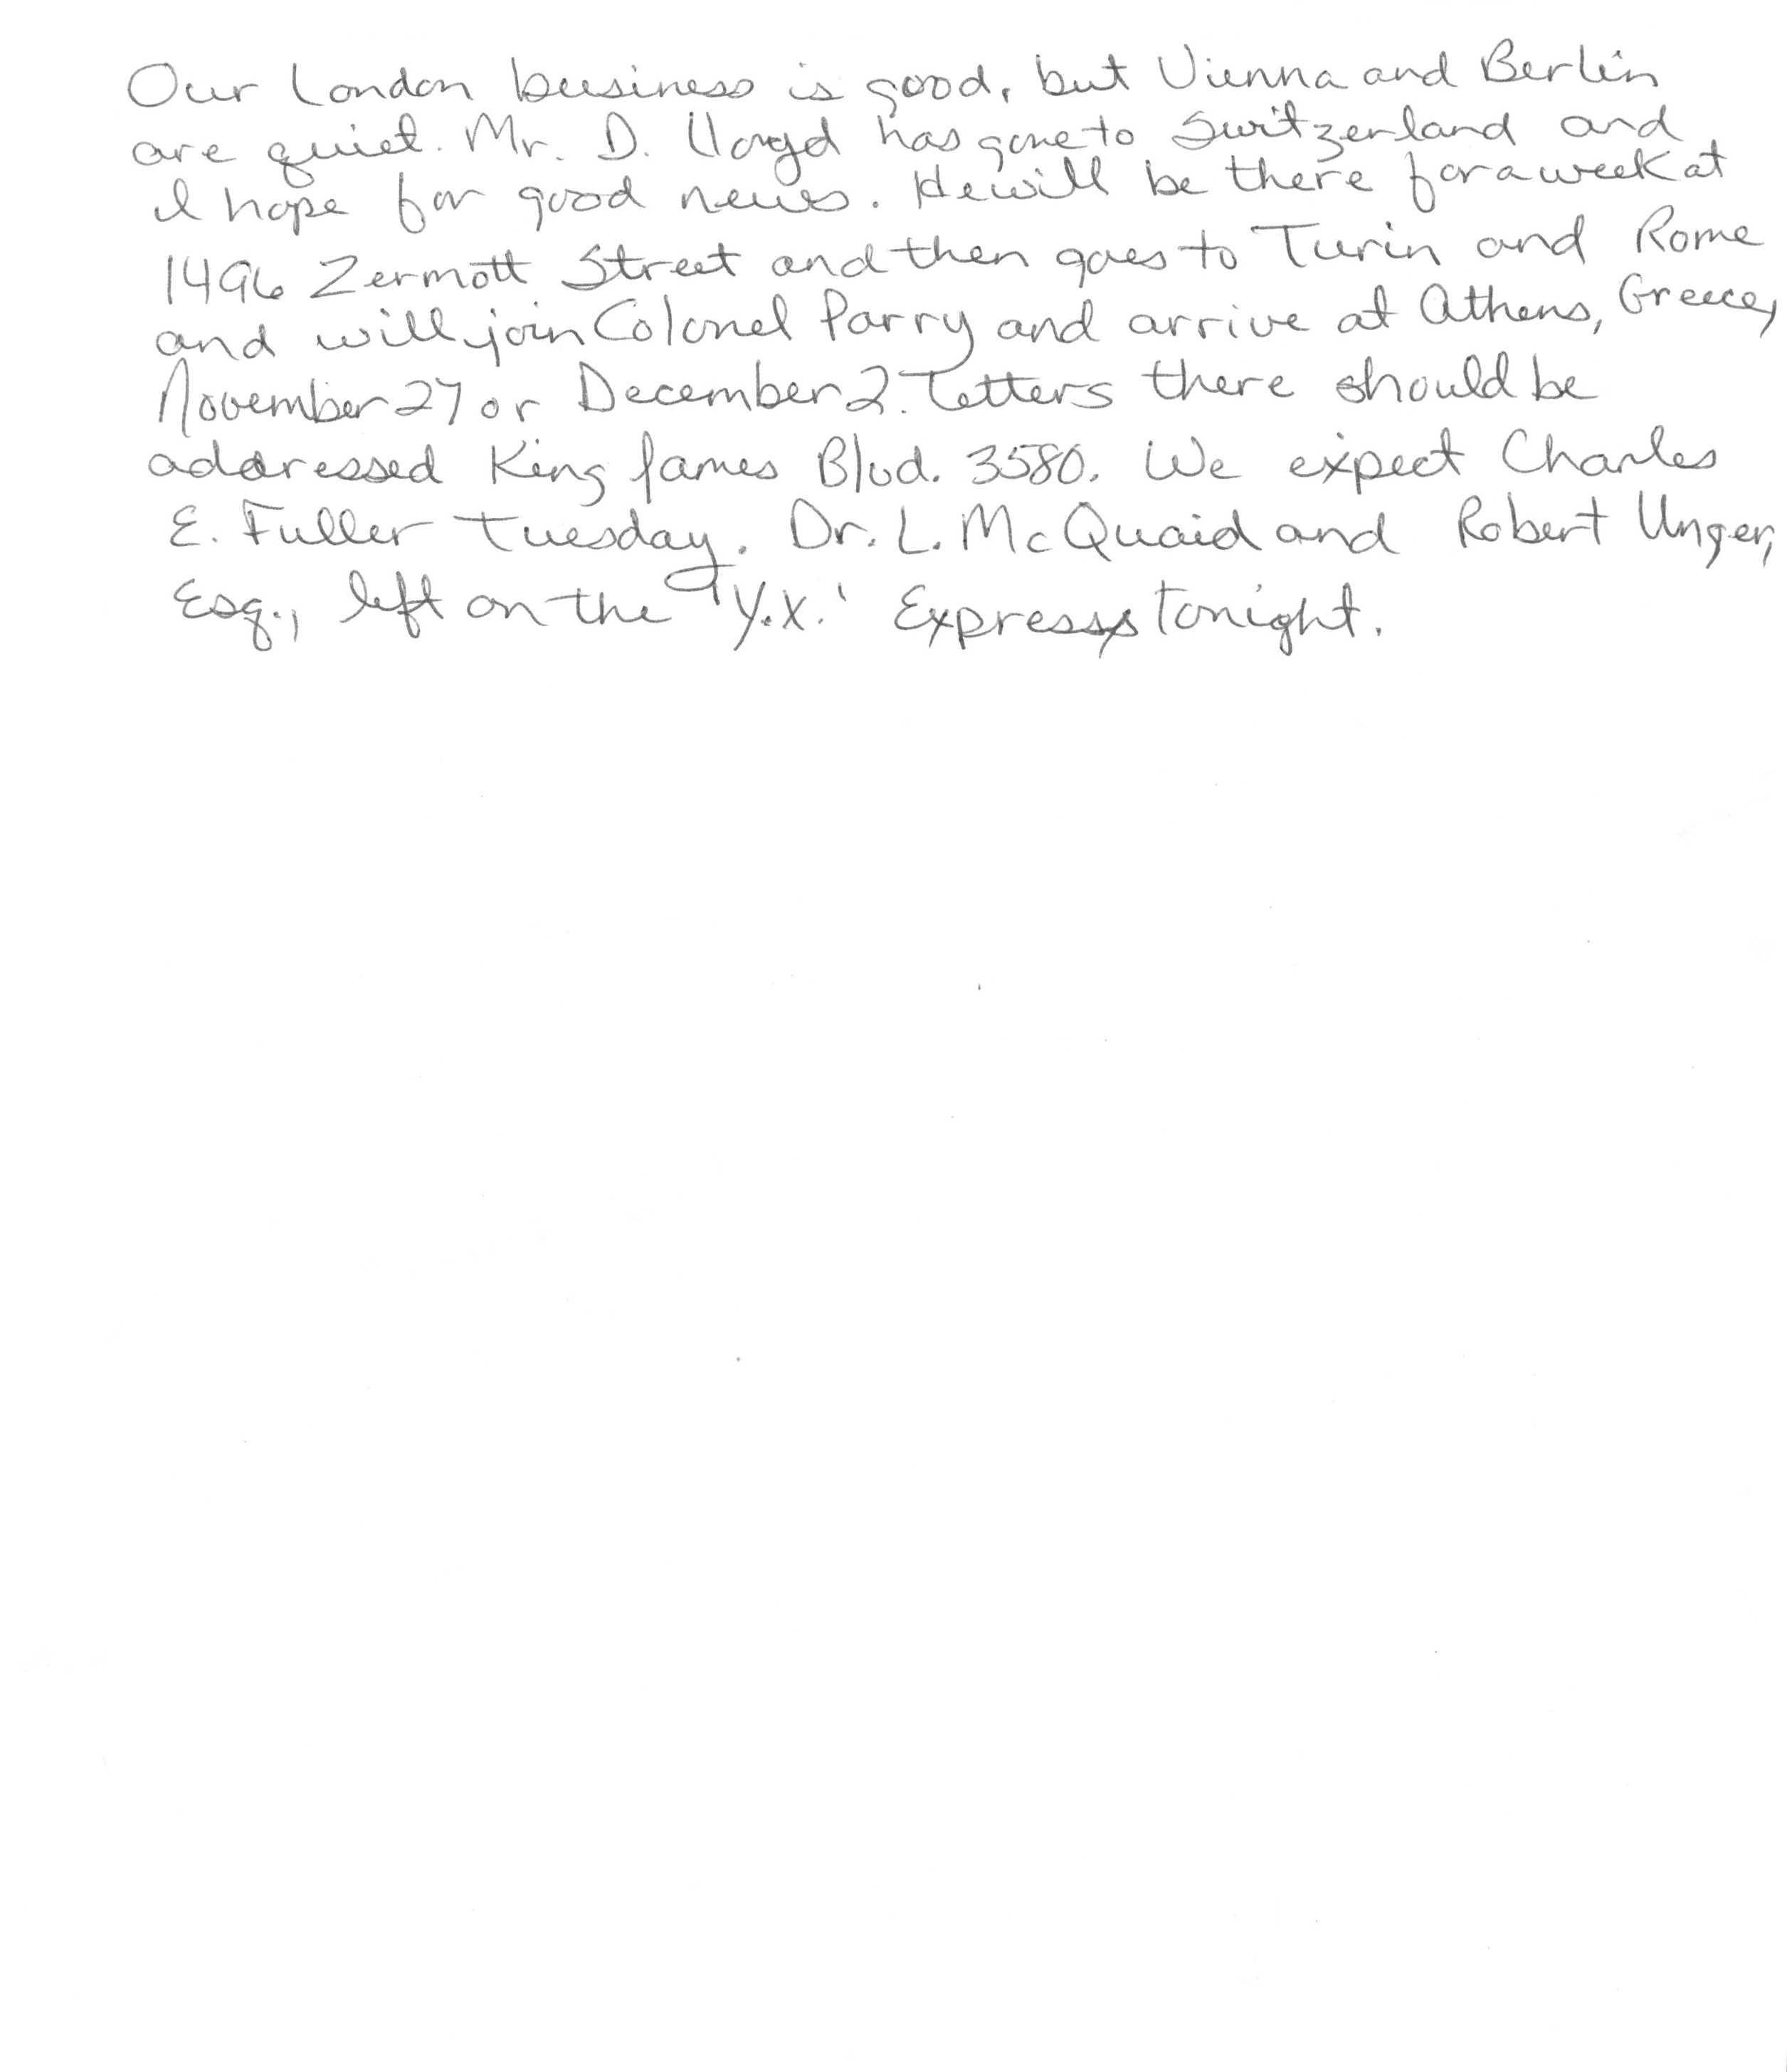 Our London business is good, but Vienna and Berlin
are quiet. Mr. D. Lloyd has gone to Switzerland and
I hope for good news. He will be there for a week at
1496 Zermott Street and then goes to Turin and Rome
and will join Colonel Parry and arrive at Athens, Greece,
November 27 or December 2. Letters there should be
addressed King James Blvd. 3580. We expect Charles
E. Fuller Tuesday. Dr. L. McQuaid and Robert Unger,
Esq., left on the 'Y.X.' Express tonight.